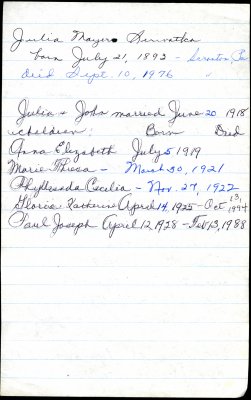 Julia Mayer Sirvatka
born July 21, 1893 - Scranton, Pa
died Sept. 10, 1976 "
Julia & John married June 20 1918
children: Born Died
Anna Elizabeth July 5 1919
Marie Theresa - March 30, 1921
Phyllis Cecilia - Nov. 27, 1922
Gloria Katherine April 14, 1925 - Oct 13, 1994
Paul Joseph April 12 1928 - Feb 13, 1988